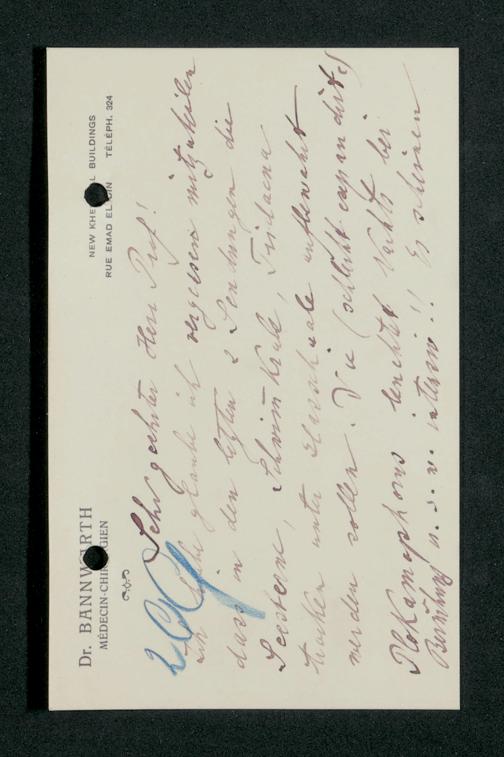 Dr. BANNWARTH
MÉDECIN-CHIRURGIEN
NEW KHEDIVIAL BUILDINGS
RUE EMAD EL DIN TÉLÉPH. 324
Sehr geehrter Herr Prof!
Ich glaube ich vergessen mitzuteilen
dass in den letzten 2 Sendungen die
Seesterne, Schwim̅ Krabe, Tridacna
trocken unter aufbewahrt
werden sollen. Die (schlecht expandirte)
Plokamophorus leuchtet Nachts bei
Berührung u. s. w. intensiv!! Es scheinen